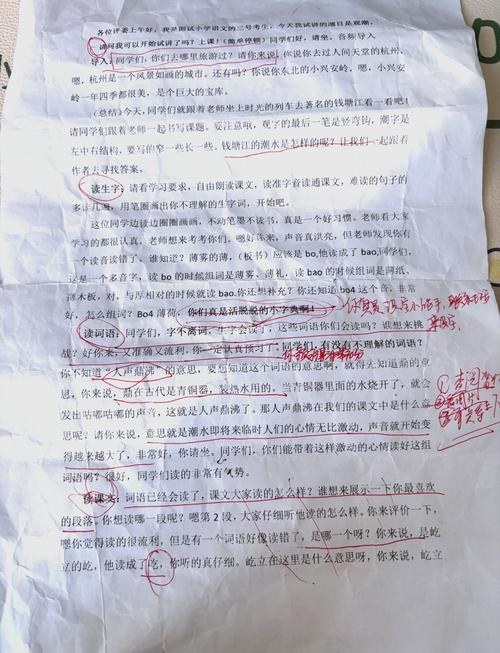 各位评委上午好，我是面试小学语文的三号考生，今天我试讲的题目是观潮，
请问我可以开始试讲了吗？上课！（简单停顿）同学们好，请坐。音频导入
导入：同学们，你们去哪里旅游过？请你来说！你说你去过人间天堂的杭州，
嗯，杭州是一个风景如画的城市。还有吗？你说你东北的小兴安岭，嗯，小兴安
岭一年四季都很美，是个巨大的宝库。
（总结）今天，同学们就跟着老师坐上时光的列车去著名的钱塘江看一看吧！
请同学们跟着老师一起书写课题。要注意哦，观字的最后一笔是竖弯钩，潮字是
左中右结构，要写的窄一些长一些。钱塘江的潮水是怎样的呢？让我们一起跟着
作者去寻找答案。
读生字：请看学习要求，自由朗读课文，读准字音读通课文，难读的句子的
多读几遍，用笔圈画出你不理解的字词，开始吧。
这位同学边读边圈圈画画，不动笔墨不读书，真是一个好习惯。老师看大家
学习的都很认真，老师想来考考你们。嗯好你来，声音真洪亮，但老师发现你有
一个读音读错了。谁知道？薄雾的薄，（板书）应该是 bo,他读成了 bao,同学们，
这是一个多音字，读 bo 的时候组词是薄雾、薄礼，读 bao 的时候组词是薄纸、
薄木板，对，与厚相对的时候就读 bao.你还想补充？你还知道 bo4 这个音，非常
好，怎么组词？Bo4 薄荷，你们真是活脱脱的小字典啊！
读词语：同学们，字不离词，生字会读了，这些词语你们会读吗？谁想来挑
战？好你来，又准确又流利，你一定认真预习了。同学们，有没有不理解的词语？
你不知道“人声鼎沸”的意思，要想知道这个词语的意思啊，就得先知道鼎的意
思，你来说，鼎在古代是青铜器，装热水用的。当青铜器里面的水烧开了，就会
发出咕嘟咕嘟的声音，这就是人声鼎沸了。那人声鼎沸在我们的课文中是什么意
思呢？请你来说，意思就是潮水即将来临时人们的心情无比激动，声音就开始变
得越来越大了，非常好，你请坐。同学们，你们能带着这样激动的心情读好这组
词语吗？很好，同学们读的非常有气势。
读课文：词语已经会读了，课文大家读的怎么样？谁想来展示一下你最喜欢
的段落，你想读哪一段呢？嗯第 2 段，大家仔细听他读的怎么样。你来评价一下，
嗯你觉得读的很流利，但是有一个词语好像读错了，是哪一个呀？你来说，是屹
立的屹，他读成了吃，你听的真仔细。屹立在这里是什么意思呀，你来说，屹立